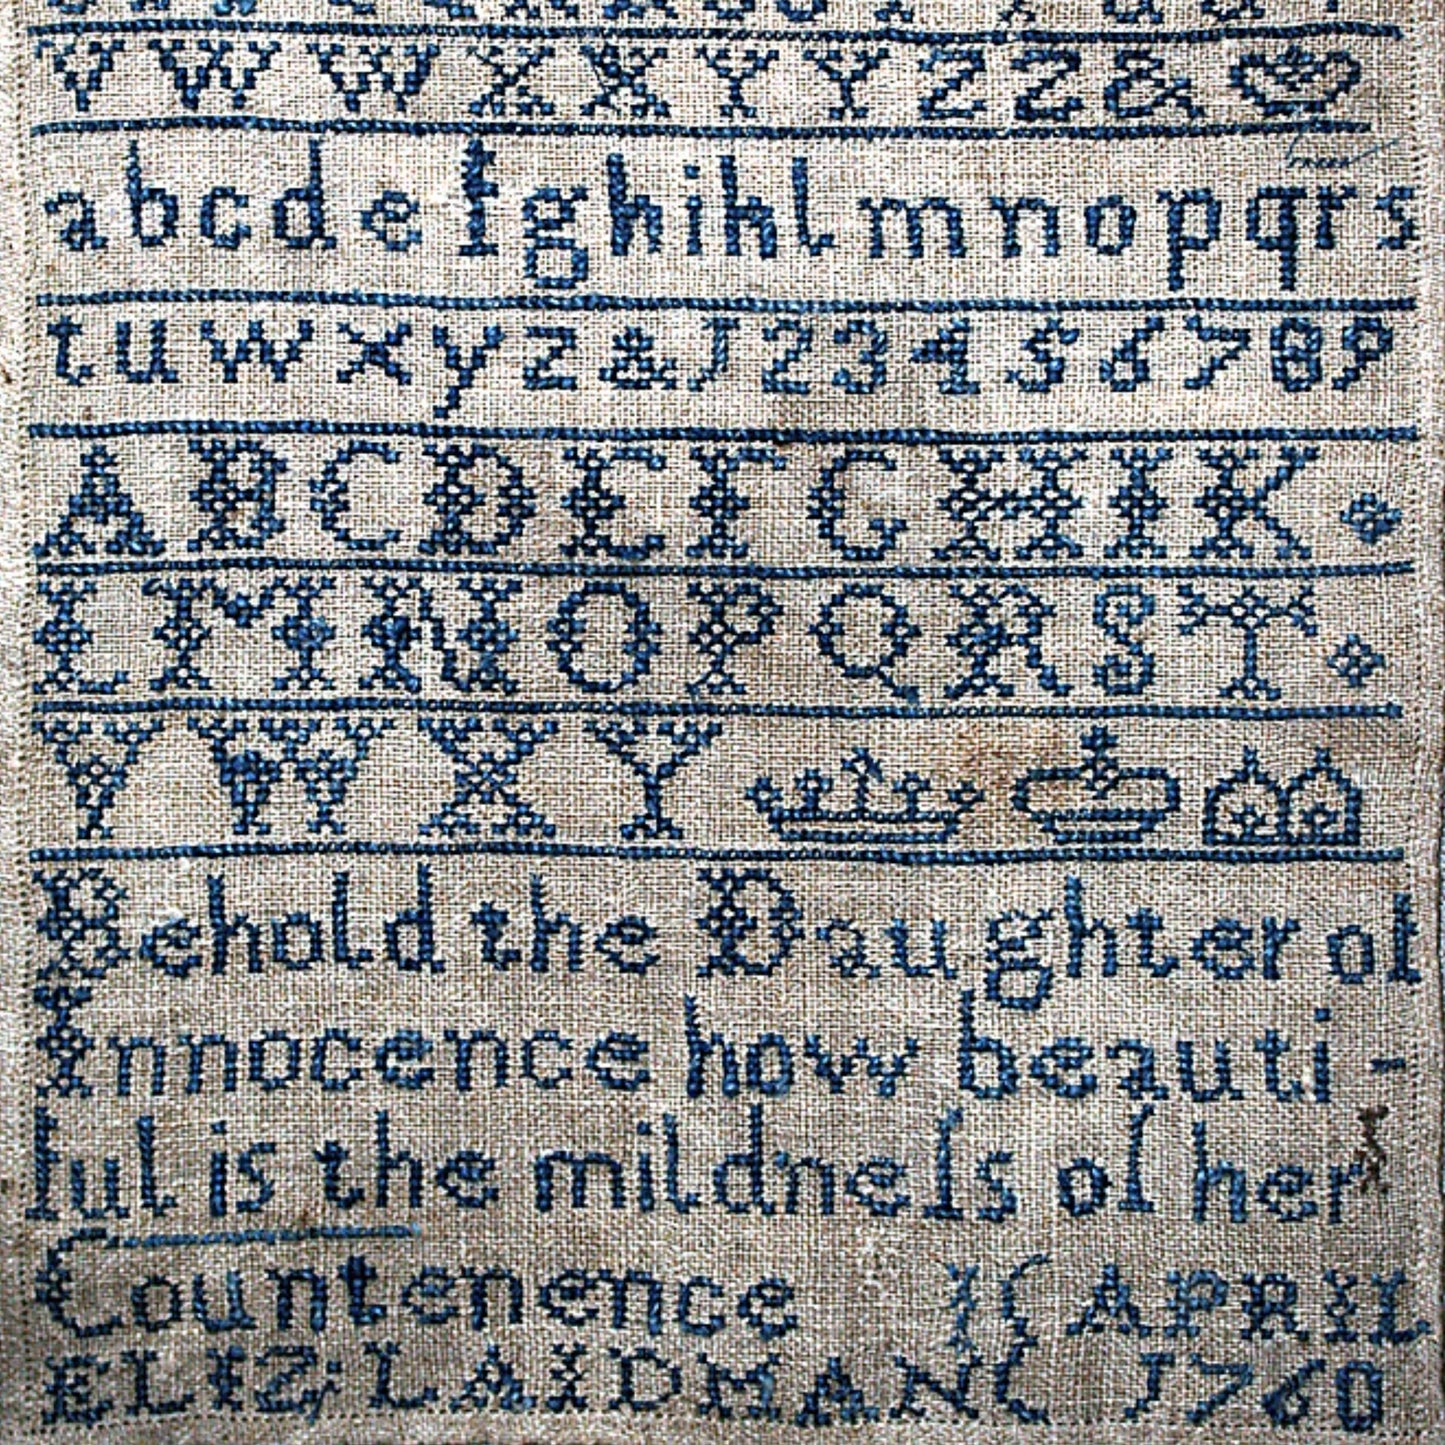 V W W X X Y Y Z Z &
a b c d e f g h i h l m n o p q r s
t u w x y z & J 2 3 4 5 6 7 8 9
A B C D E F G H I K
L M N O P Q R S T
V W X Y
Behold the Daughter of
Innocence how beauti-
ful is the mildneſs of her
Countenence APRIL
ELIZ; LAIDMAN J760